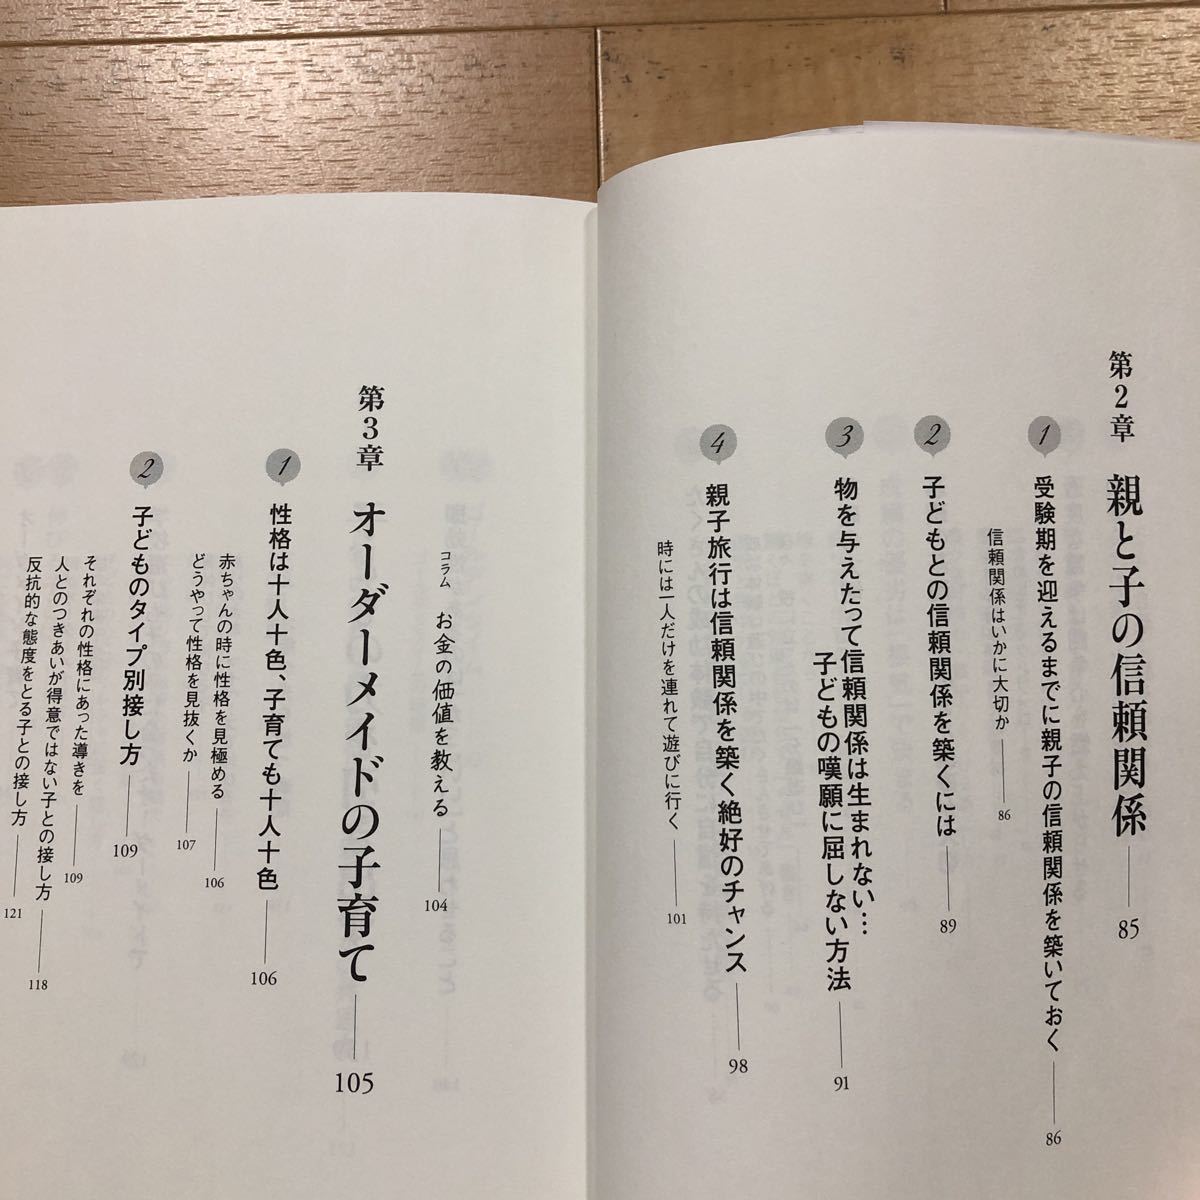 第2章 親と子の信頼関係 85
1 受験期を迎えるまでに親子の信頼関係を築いておく 86
信頼関係はいかに大切か 86
2 子どもとの信頼関係を築くには 89
3 物を与えたって信頼関係は生まれない…
子どもの嘆願に屈しない方法 91
4 親子旅行は信頼関係を築く絶好のチャンス 98
時には一人だけを連れて遊びに行く 101
コラム お金の価値を教える 104
第3章 オーダーメイドの子育て 105
1 性格は十人十色、子育ても十人十色 106
赤ちゃんの時に性格を見極める 106
どうやって性格を見抜くか 107
2 子どものタイプ別接し方 109
それぞれの性格にあった導きを 109
人とのつきあいが得意ではない子との接し方 118
反抗的な態度をとる子との接し方 121